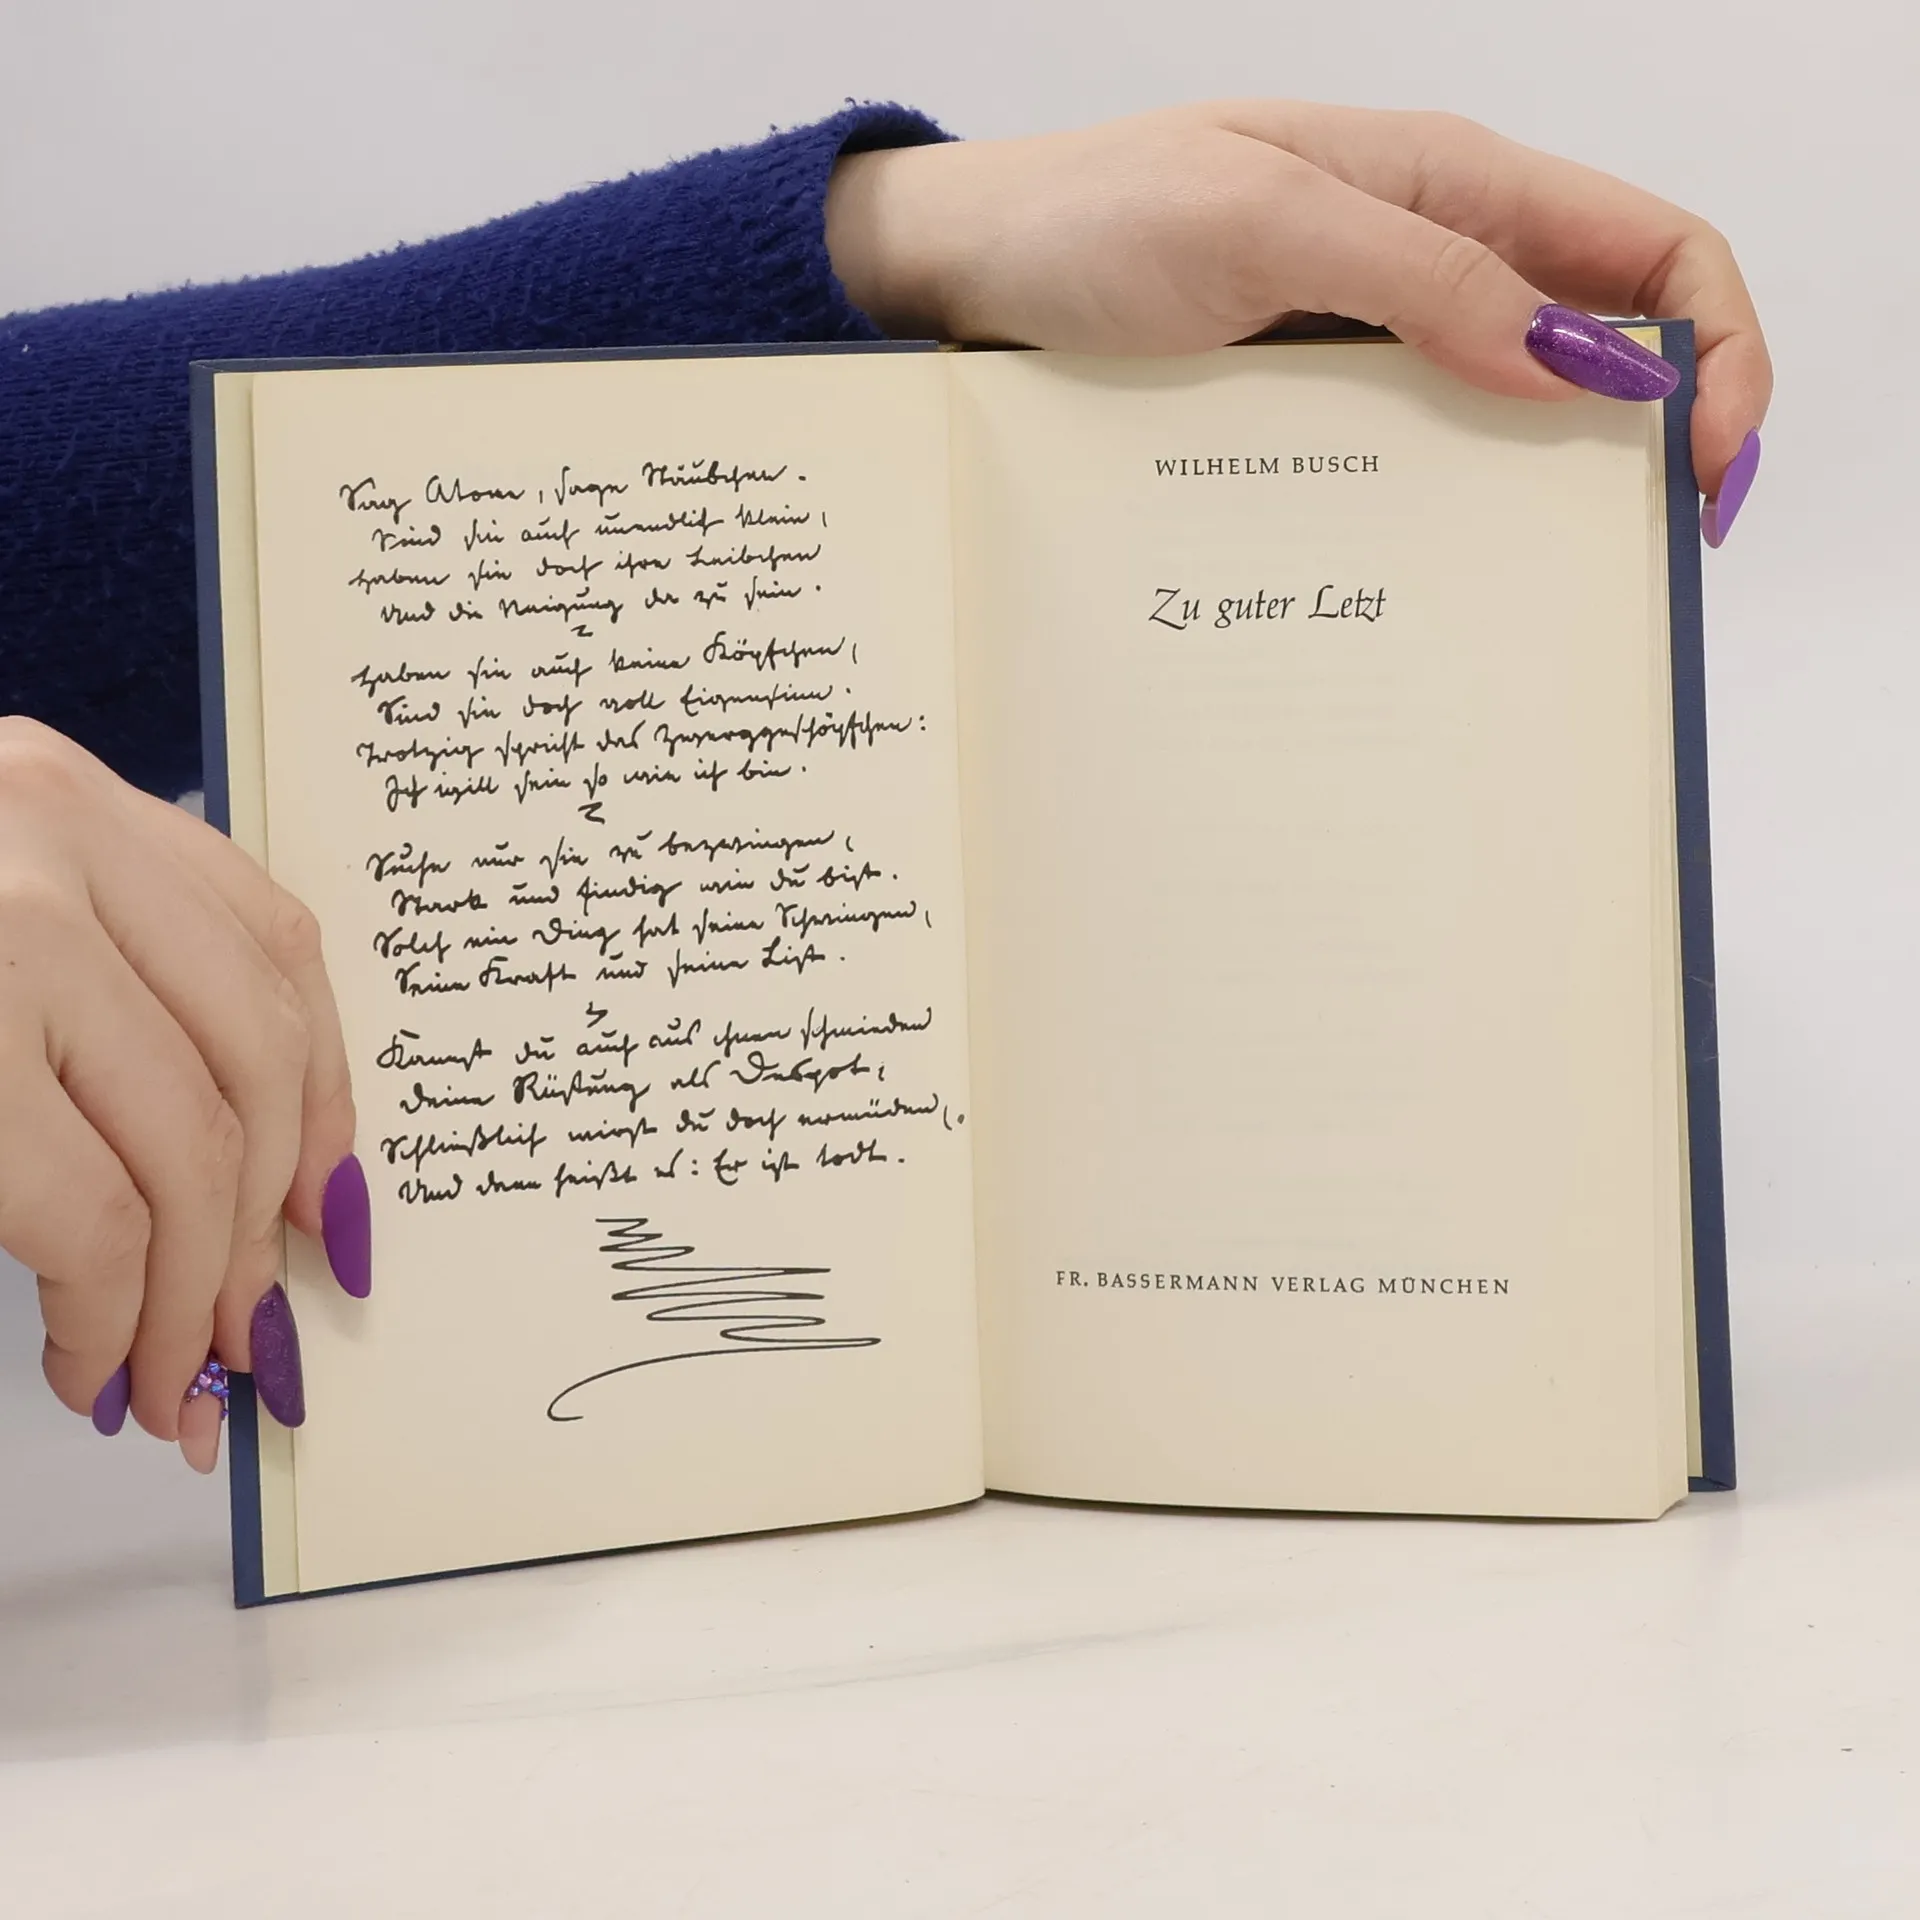 Sag Atome, sage Stäubchen.
Sind sie auch unendlich klein,
Haben sie doch ihre Leibchen
Und die Neigung da zu sein.
Haben sie auch keine Köpfchen,
Sind sie doch voll Eigensinn.
Trotzig spricht das Zwerggeschöpfchen:
Ich will sein so wie ich bin.
Suche nur sie zu bezwingen,
Stark und findig wie du bist.
Solch ein Ding hat seine Schwingen,
Seine Kraft und seine List.
Kannst du auch aus ihnen schmieden
Deine Rüstung als Despot,
Schließlich wirst du doch ermüden,
Und dann heißt es: Er ist todt.
WILHELM BUSCH
Zu guter Letzt
FR. BASSERMANN VERLAG MÜNCHEN